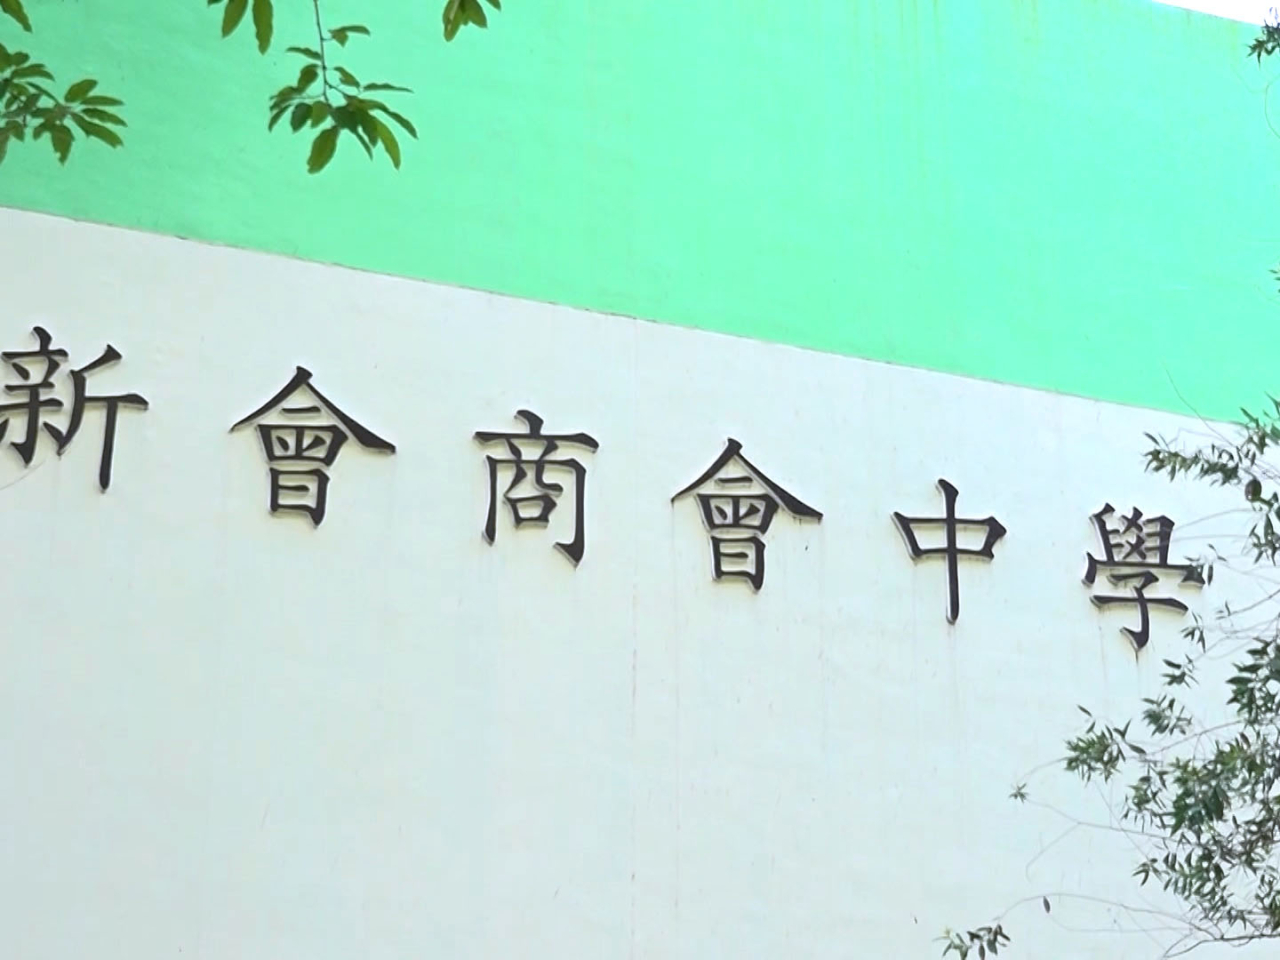 新會商會中學